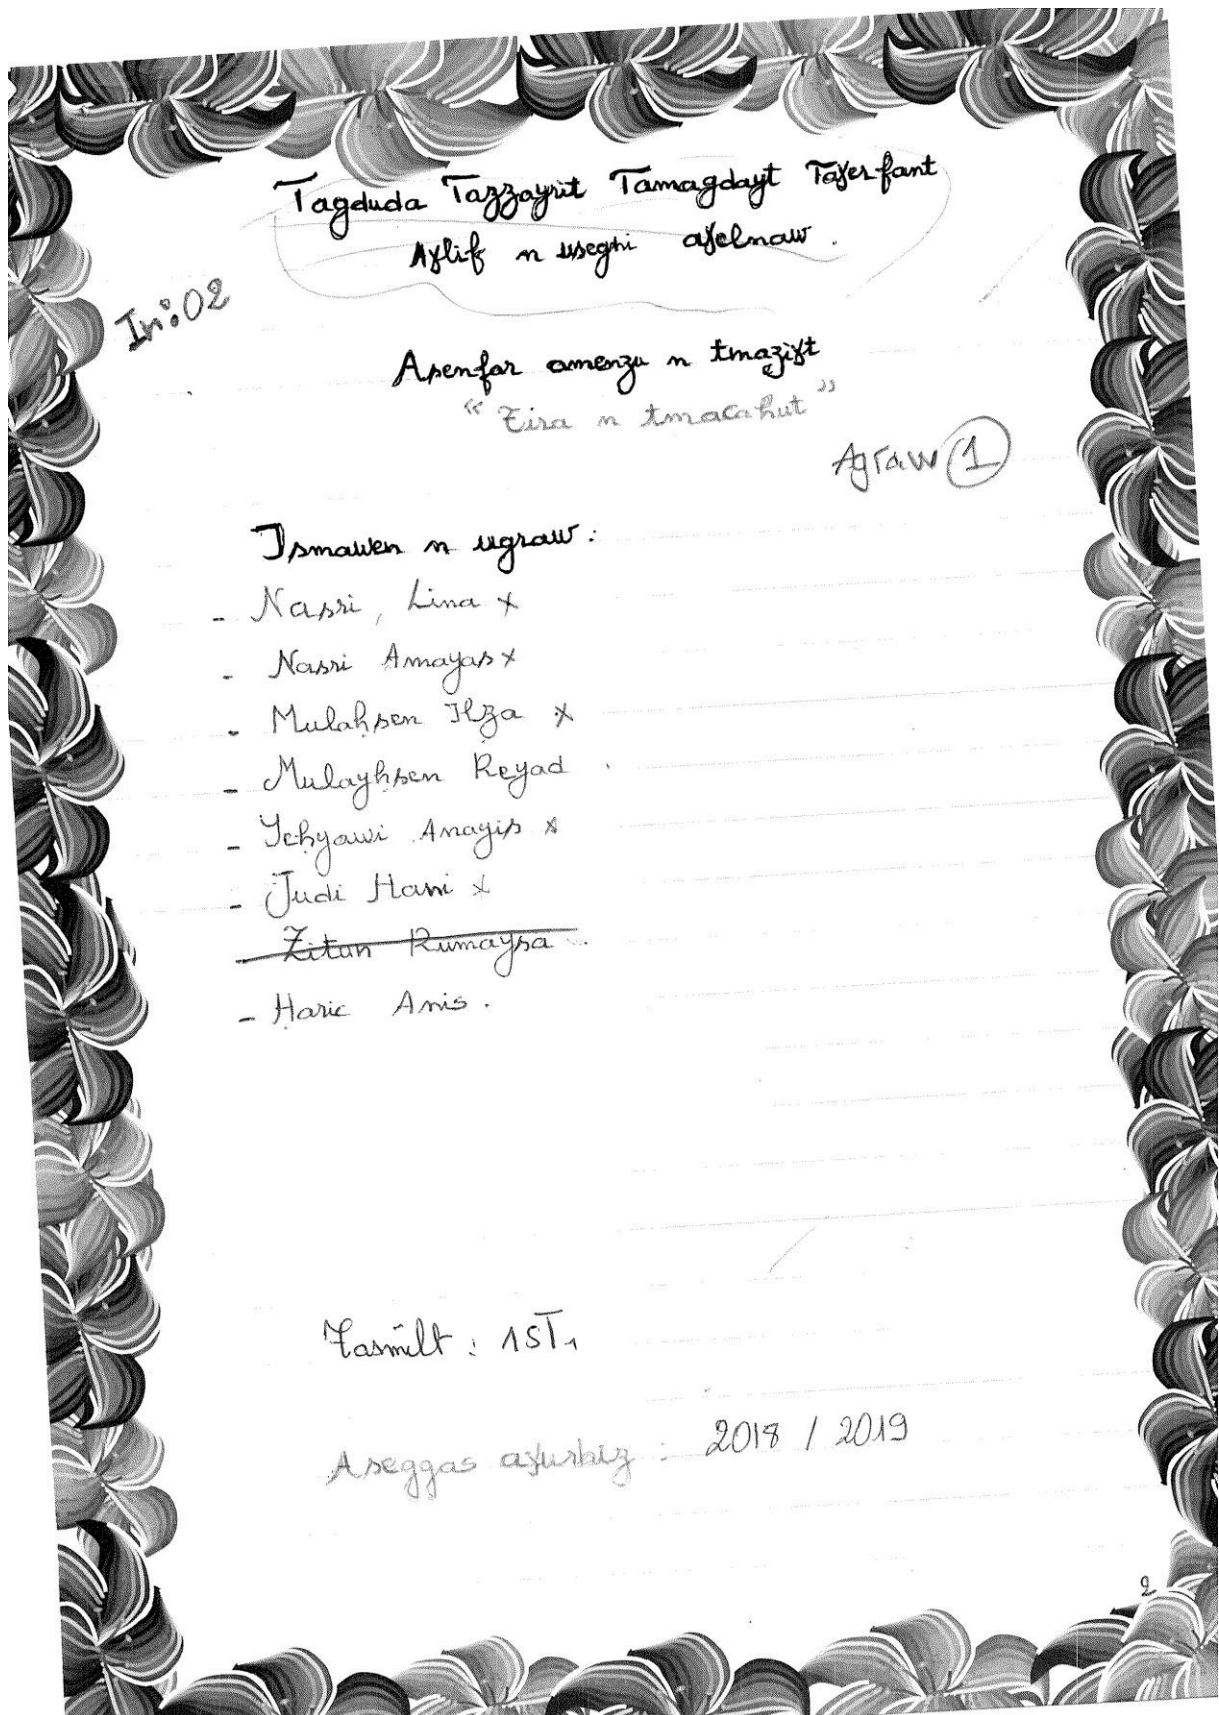 Tagduda Tazzayrit Tamagdayt Taɣerfant
Aɣlif n useghi aɣelnaw.
In:02
Asenfar amenzu n tmaziɣt
"Tira n tmacahut"
Agraw 1
Ismawen n ugraw:
- Nasri, Lina x
- Nasri Amayas x
- Mulaḥsen Ilẓa x
- Mulayḥsen Reyad.
- Yeḥyawi Anayis x
- Judi Hani x
- Zitun Rumaysa.
- Ḥaric Anis.
Tasmilt: 1ST1
Aseggas aɣurbiz: 2018 / 2019
2